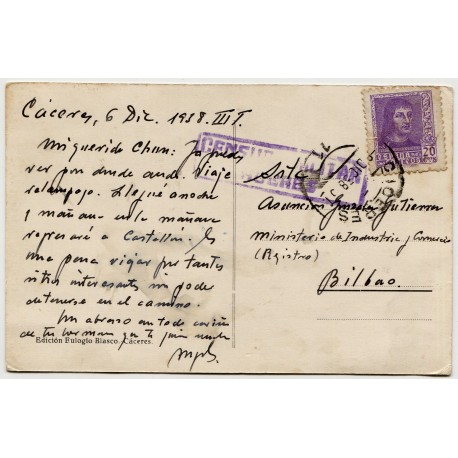 Cáceres, 6 Dic. 1938. III T.
Mi querida Chun: Ya puedes
ver por donde ando. Viaje
relámpago. Llegué anoche
y mañana en la mañana
regresaré a Castellón. Es
una pena viajar por tantos
sitios interesantes sin poder
detenerse en el camino.
Un abrazo con todo cariño
de tu hermano que te quiere mucho
Edición Eulogio Blasco. Cáceres.
CENSURA MILITAR
CACERES
CORREOS
ESPAÑA
CORREOS
20
Srta
Asunción Gutierrez
Ministerio de Industria y Comercio
(Registro)
Bilbao.